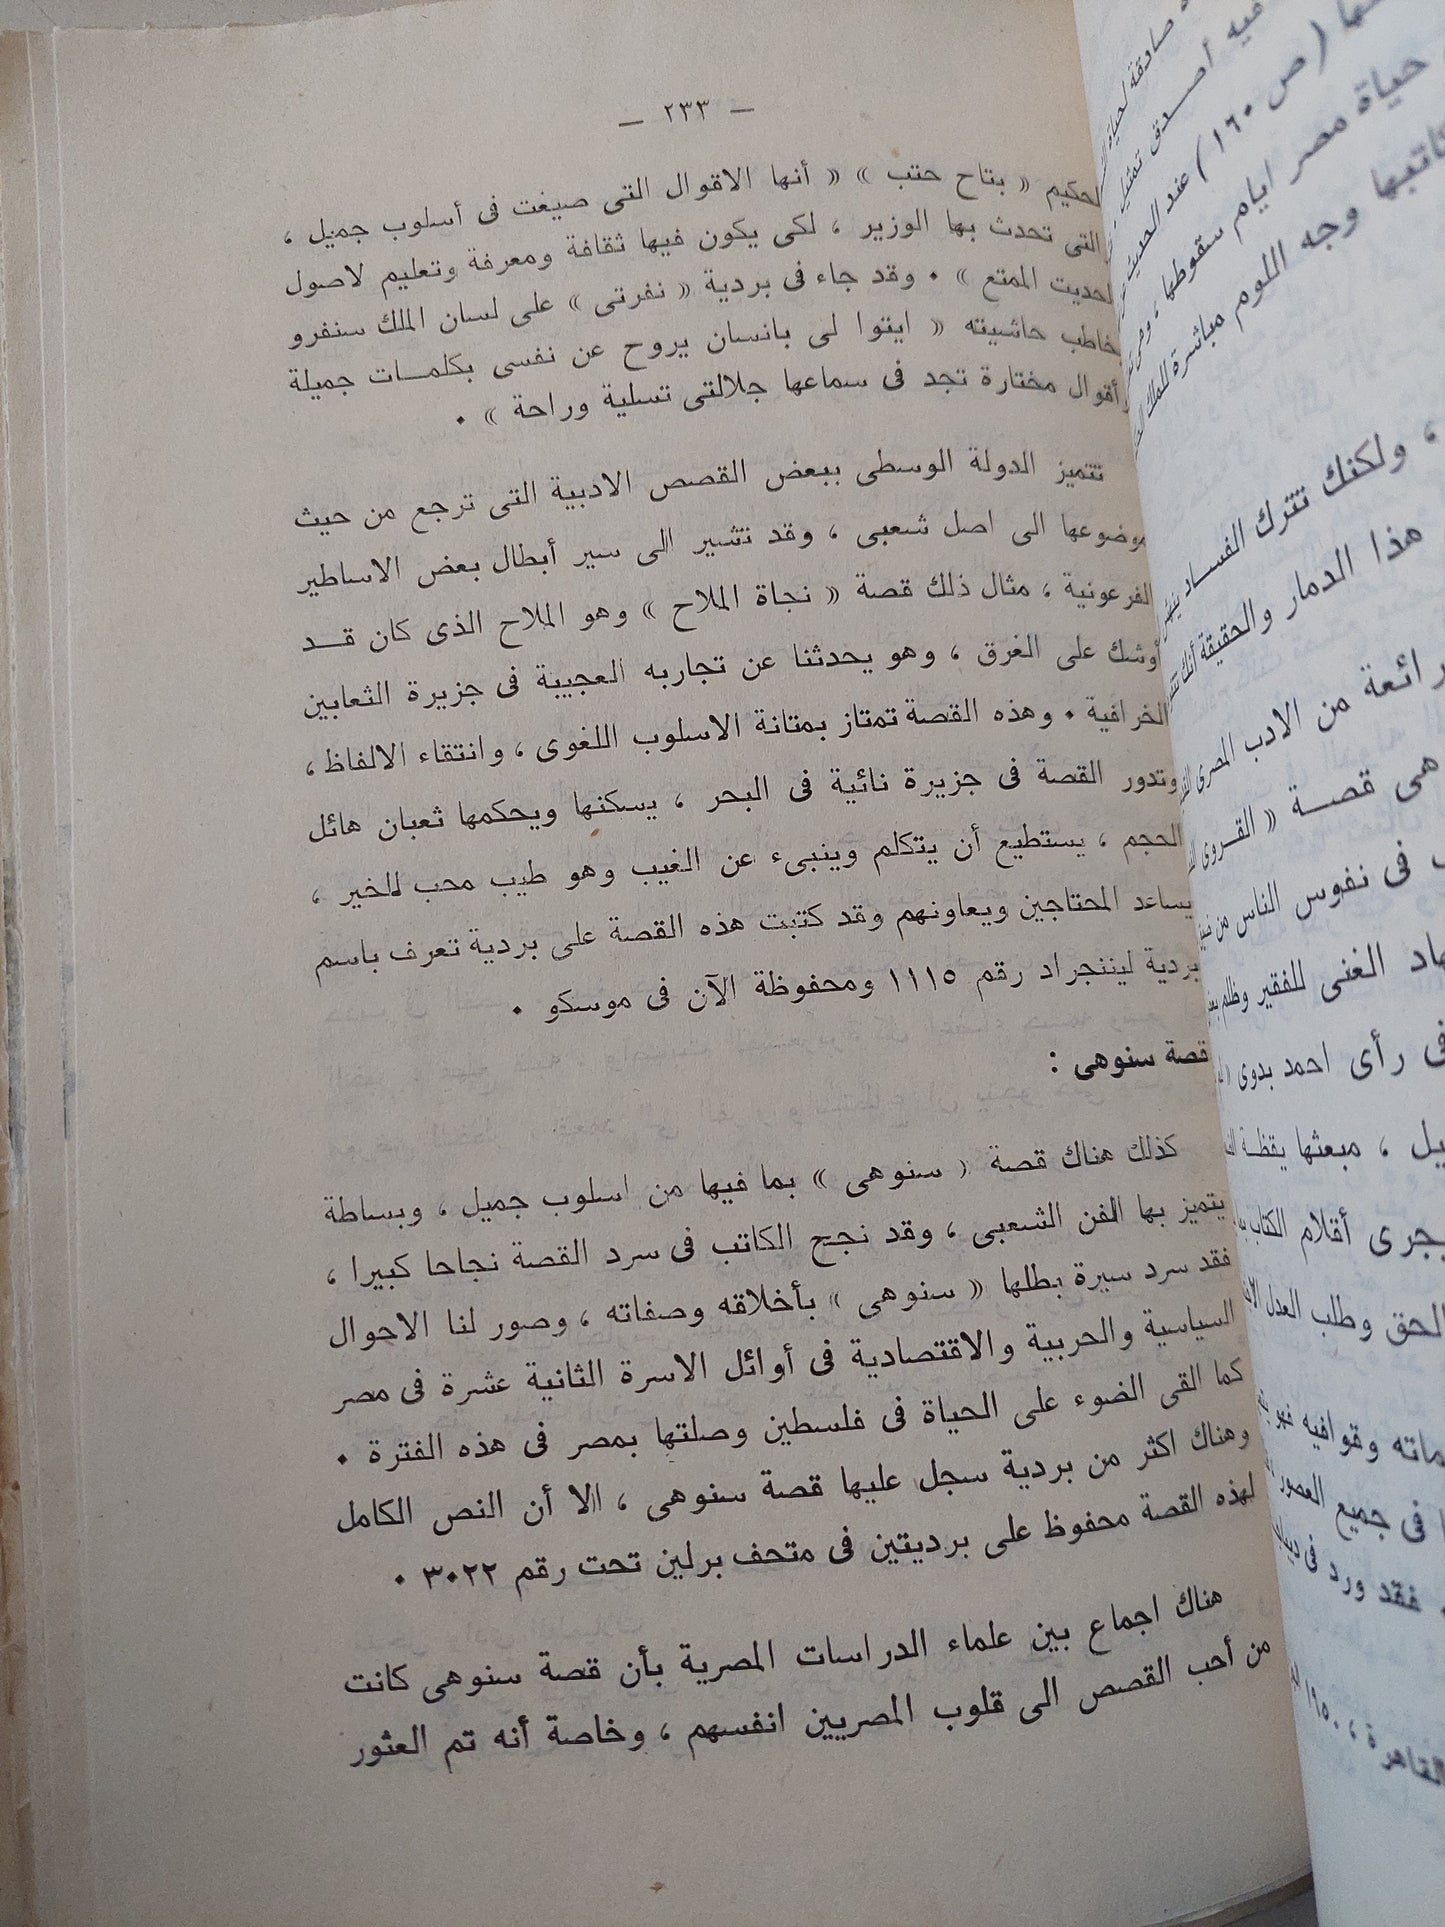 — ٢٣٣ —
لحكيم « بتاح حتب » « أنها الاقوال التى صيغت فى أسلوب جميل ،
والتى تحدث بها الوزير ، لكى يكون فيها ثقافة ومعرفة وتعليم لاصول
لحديت الممتع » • وقد جاء فى بردية « نفرتى » على لسان الملك سنفرو
خاطب حاشيته « ايتوا لى بانسان يروح عن نفسى بكلمــات جميلة
أقوال مختارة تجد فى سماعها جلالتى تسلية وراحة » •
تتميز الدولة الوسطى ببعض القصص الادبية التى ترجع من حيث
موضوعها الى اصل شعبى ، وقد تشير الى سير أبطال بعض الاساطير
الفرعونية ، مثال ذلك قصة « نجاة الملاح » وهو الملاح الذى كان قــد
أوشك على الغرق ، وهو يحدثنا عن تجاربه العجيبة فى جزيرة الثعابين
الخرافية • وهذه القصة تمتاز بمتانة الاسلوب اللغوى ، وانتقاء الالفاظ ،
وتدور القصة فى جزيرة نائية فى البحر ، يسكنها ويحكمها ثعبان هائل
الحجم ، يستطيع أن يتكلم وينبىء عن الغيب وهو طيب محب للخير ،
يساعد المحتاجين ويعاونهم وقد كتبت هذه القصة على بردية تعرف باسم
بردية ليننجراد رقم ١١١٥ ومحفوظة الآن فى موسكو •
قصة سنوهى :
كذلك هناك قصة « سنوهى » بما فيها من اسلوب جميل ، وبساطة
يتميز بها الفن الشعبى ، وقد نجح الكاتب فى سرد القصة نجاحا كبيرا ،
فقد سرد سيرة بطلها « سنوهى » بأخلاقه وصفاته ، وصور لنا الاحوال
السياسية والحربية والاقتصادية فى أوائل الاسرة الثانية عشرة فى مصر
كما القى الضوء على الحياة فى فلسطين وصلتها بمصر فى هذه الفترة •
وهناك اكثر من بردية سجل عليها قصة سنوهى ، الا أن النص الكامل
لهذه القصة محفوظ على برديتين فى متحف برلين تحت رقم ٣٠٢٢ •
هناك اجماع بين علماء الدراسات المصرية بأن قصة سنوهى كانت
من أحب القصص الى قلوب المصريين انفسهم ، وخاصة أنه تم العثور
صادقة لحياة
فيه أصــدق تمثيل
(ص ١٦٠) عند الحديث
حياة مصر ايام سقوطها ،
وجه اللوم مباشرة للملك
، ولكنك تترك الفســاد
هذا الدمار والحقيقة أنك
رائعة من الادب المصرى
هى قصــة « القــروى
فى نفوس الناس من
الغنى للفقير وظلم
فى رأى احمد بدوى
، مبعثها يقظــة
أقلام الكتاب
الحق وطلب العدل
وقوافيه فهو
فى جميع العصور
فقد ورد فى
القاهرة ، ١٩٥٠